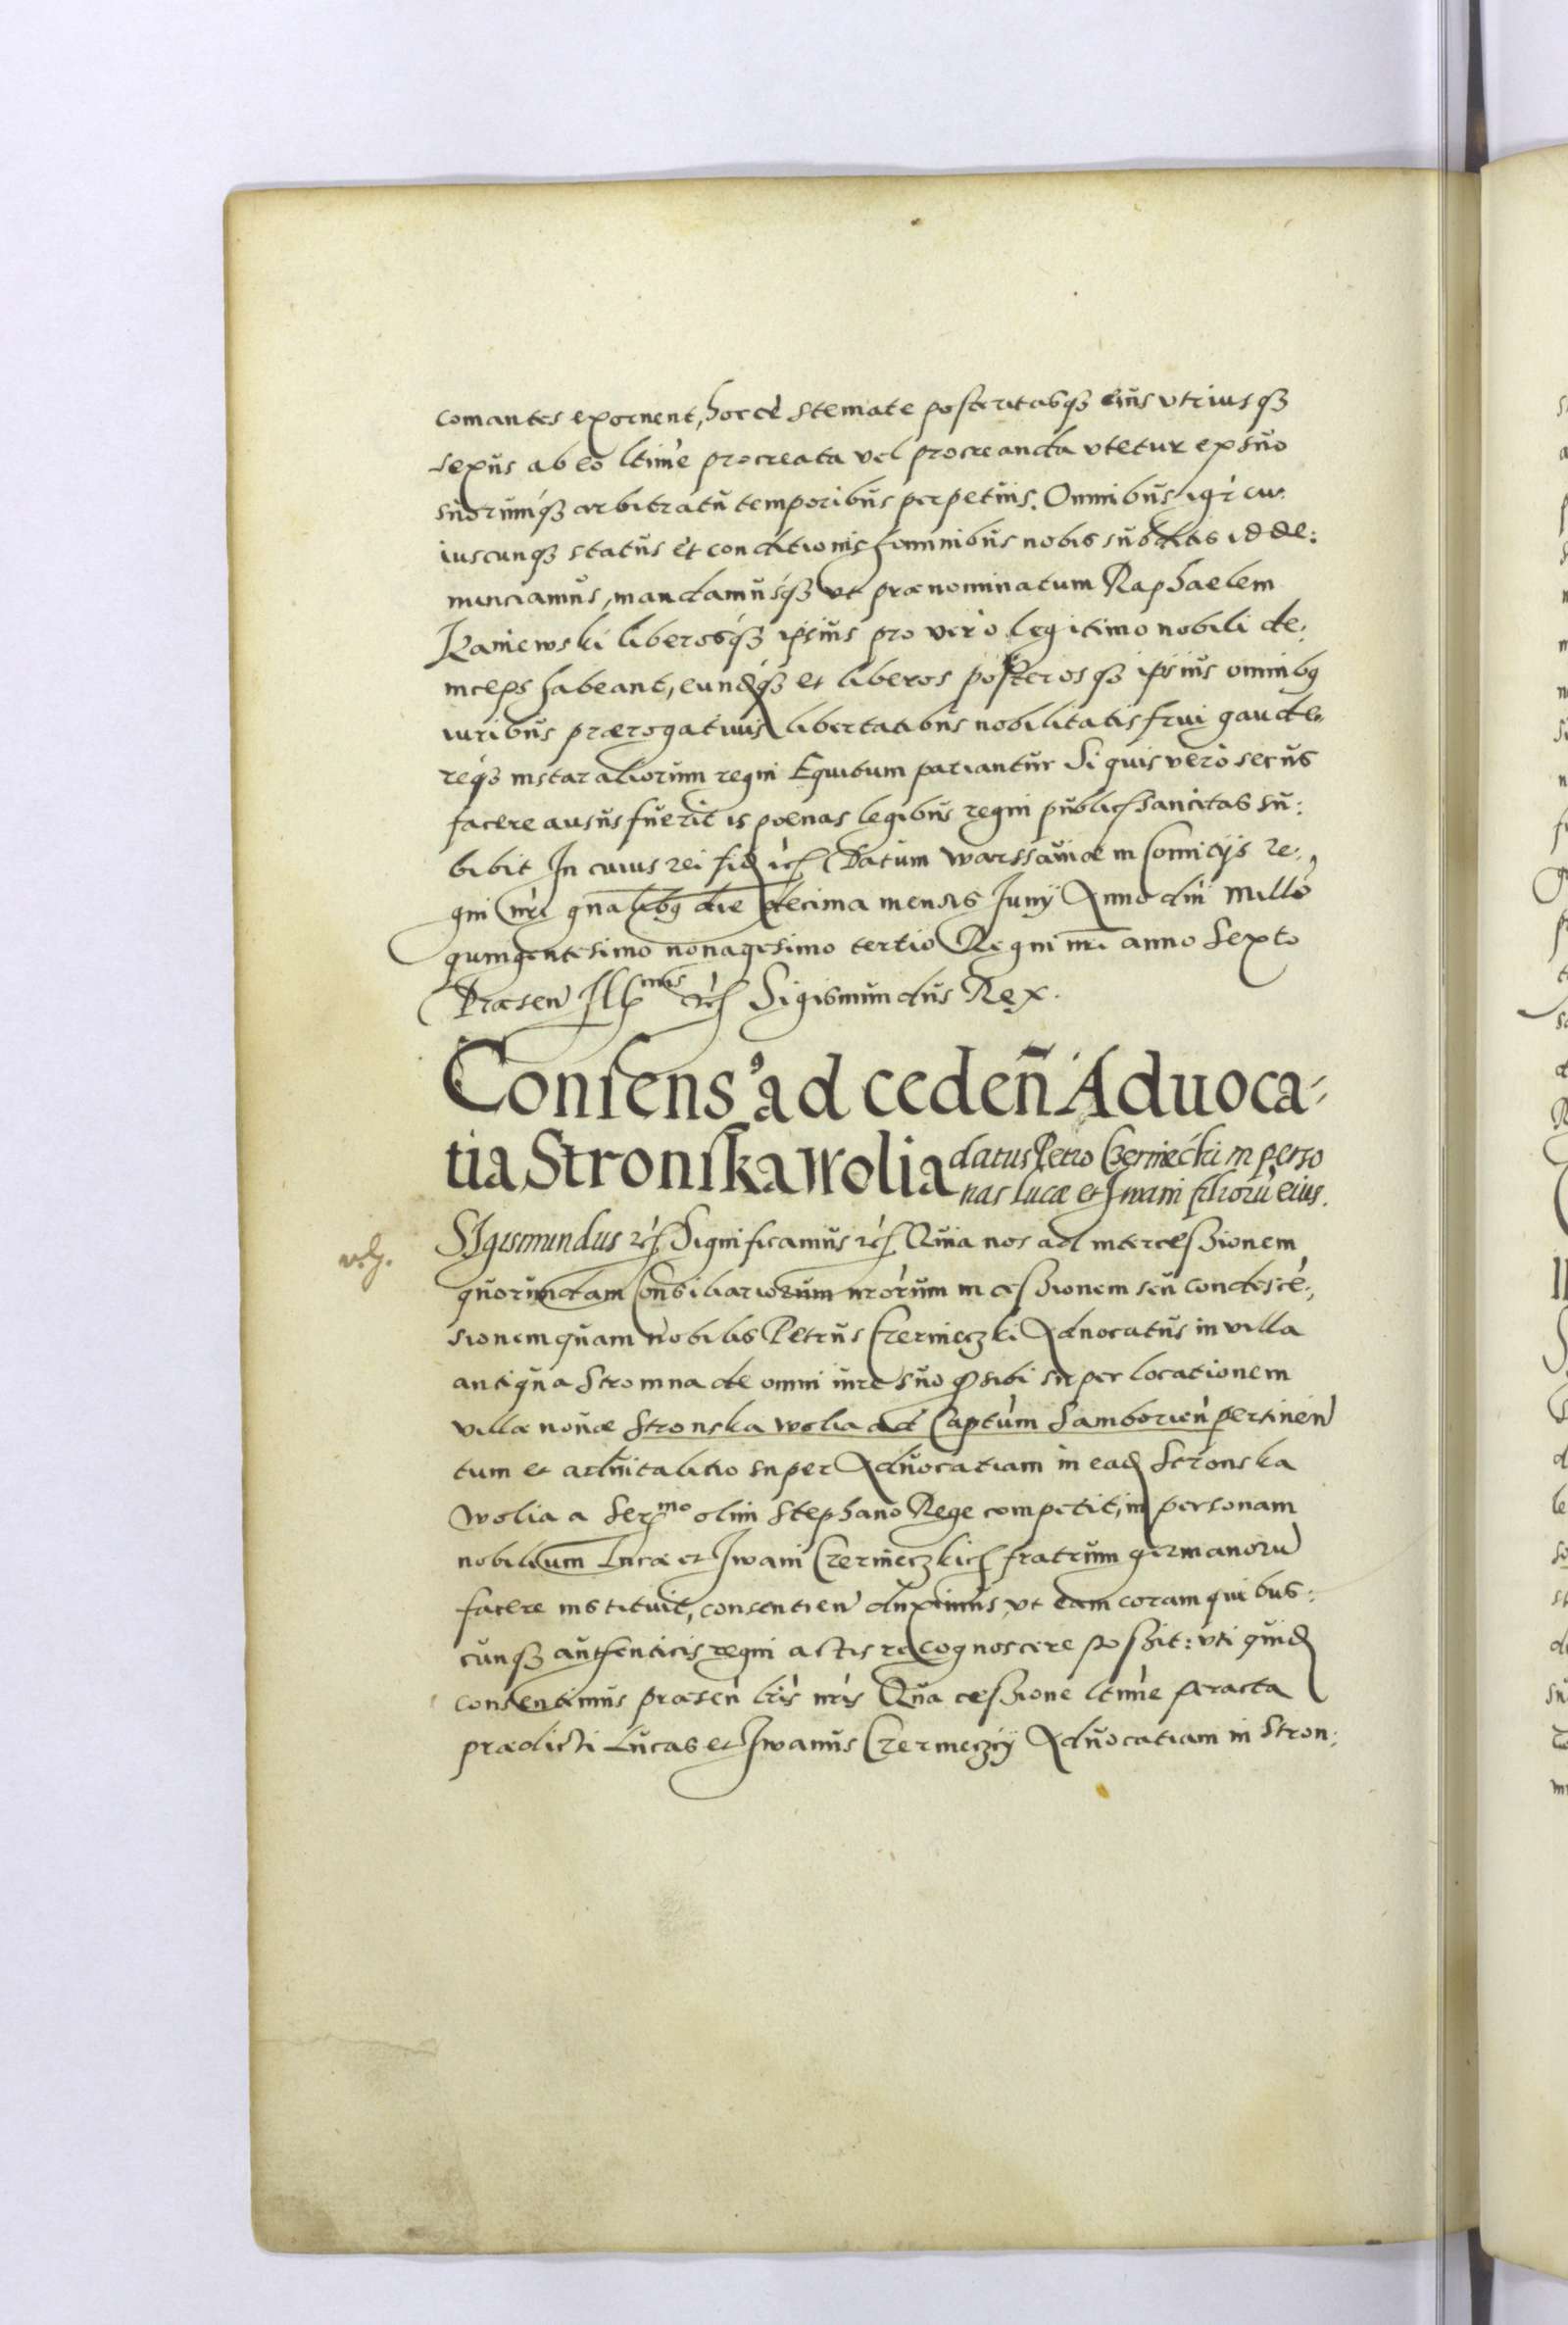 comantes exornent, hocce stemate posteritasq3 eius utriusq3
sexus ab eo ltime procreata vel procreanda utetur ex suo
suorumq3 arbitratu temporibus perpetuis. Omnibus igr cu:
iuscunq3 status et conditionis hominibus nobis subditis id de:
nunciamus, mandamusq3 ut prænominatum Raphaelem
Kaniewski liberosq3 ipsius pro vero legitimo nobili de:
inceps habeant, eundq3 et liberos posterosq3 ipsius omnibg
iuribus prærogativis libertatibus nobilitatis frui gaude:
req3 instar aliorum regni Equitum patiantur Si quis vero secus
facere ausus fuerit is poenas legibus regni publics sancitas su:
bibit In cuius rei fid etc Datum Warssaviæ in Comitijs re:
gni nri gnalibg die decima mensis Junij Anno dni Millo
quingentesimo nonagesimo tertio Regni nri anno Sexto
Præsen Ill mis etc Sigismundus Rex.
Consens9 ad cedeñ Aduoca-
tia Stronska Wolia datus Petro Czermecki in perso
nas Lucæ et Iwani filiorū eius.
SIgismundus etc Significamus etc Quia nos ad intercessionem
quorundam Consiliariorum nrorum in cessionem seu condescē:
sionem quam nobilis Petrus Czermeczki Advocatus in villa
antiqua Stromna de omni iure suo qd sibi super locationem
villæ novæ Stronska wolia ad Captum Samborien pertinen
tum et advitalitio super Advocatiam in ead Stronska
Wolia a Ser mo olim Stephano Rege competit, in personam
nobilium Lucæ et Iwani Czermeczkich fratrum germanorū
facere instituit, consentien duximus, ut eam coram quibus:
cunq3 authenticis regni actis recognoscere possit: uti quid
consentimus præsen lris nris Qua cessione ltime peracta
prædicti Lucas et Iwanus Czermeczcij Advocatiam in Stron: